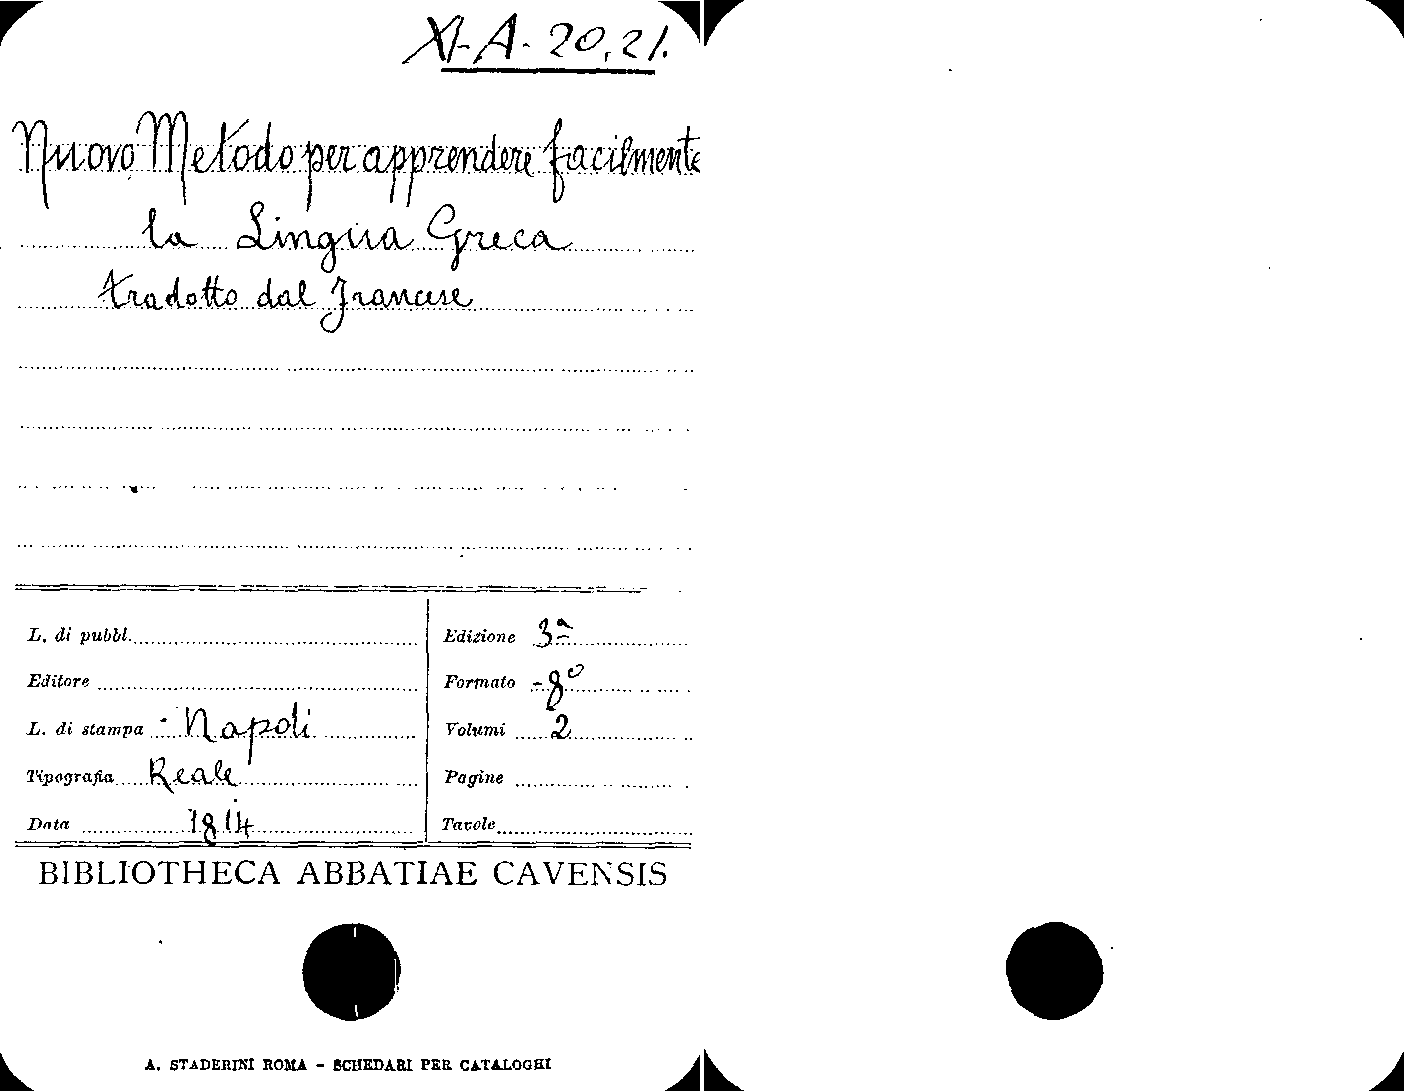 XI-A-20,21.
Nuovo Metodo per apprendere facilmente
la Lingua Greca
tradotto dal Francese
L. di pubbl.
Editore
L. di stampa - Napoli
Tipografia Reale
Data 1814
Edizione 3ª
Formato -8º
Volumi 2
Pagine
Tavole
BIBLIOTHECA ABBATIAE CAVENSIS
A. STADERINI ROMA - SCHEDARI PER CATALOGHI